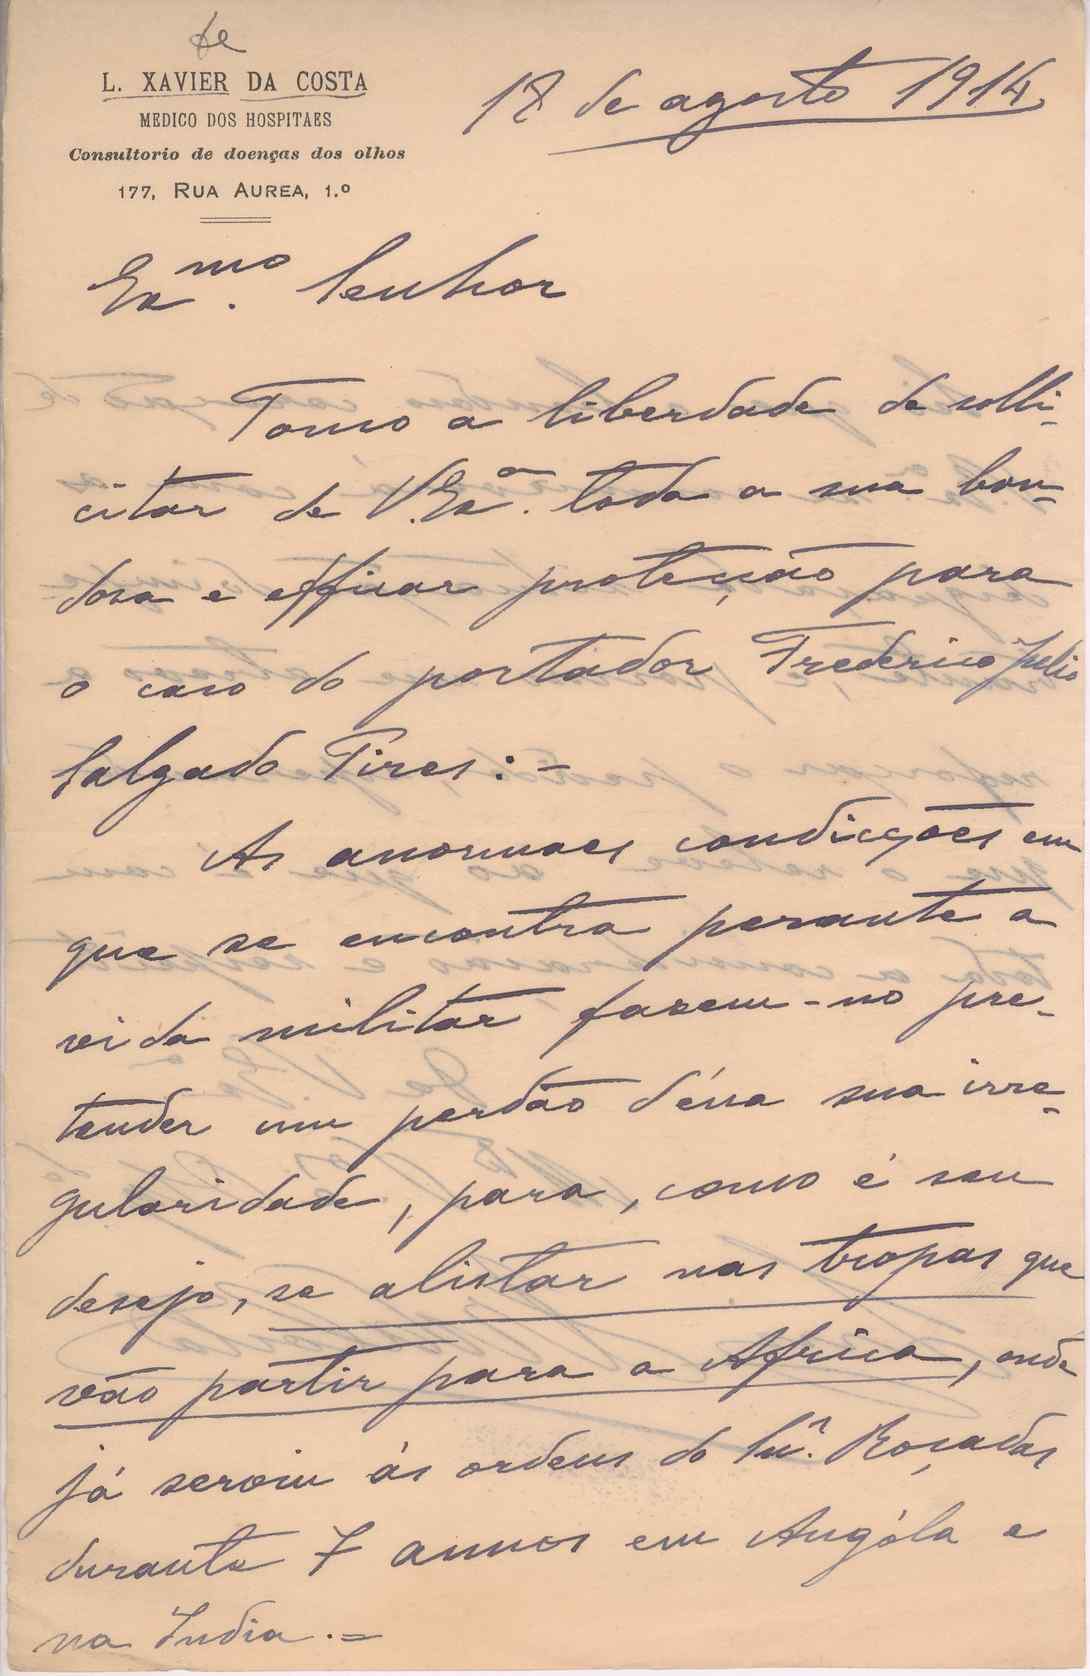 de
L. XAVIER DA COSTA
MEDICO DOS HOSPITAES
Consultorio de doenças dos olhos
177, RUA AUREA, 1.º
18 de agosto 1914.
Exmo. Senhor
Tomo a liberdade de solli-
citar de V. Exa. toda a sua bon-
dosa e efficaz protecção para
o caso do portador Frederico Julio
Salgado Pires: -
As anormaes condicções em
que se encontra perante a
vida militar fazem-no pre-
tender um perdão d'éssa sua irre-
gularidade, para, como é seu
desejo, se alistar nas tropas que
vão partir para a Africa, onde
já serviu ás ordens do Snr. Roçadas
durante 7 annos em Angóla e
na India. =